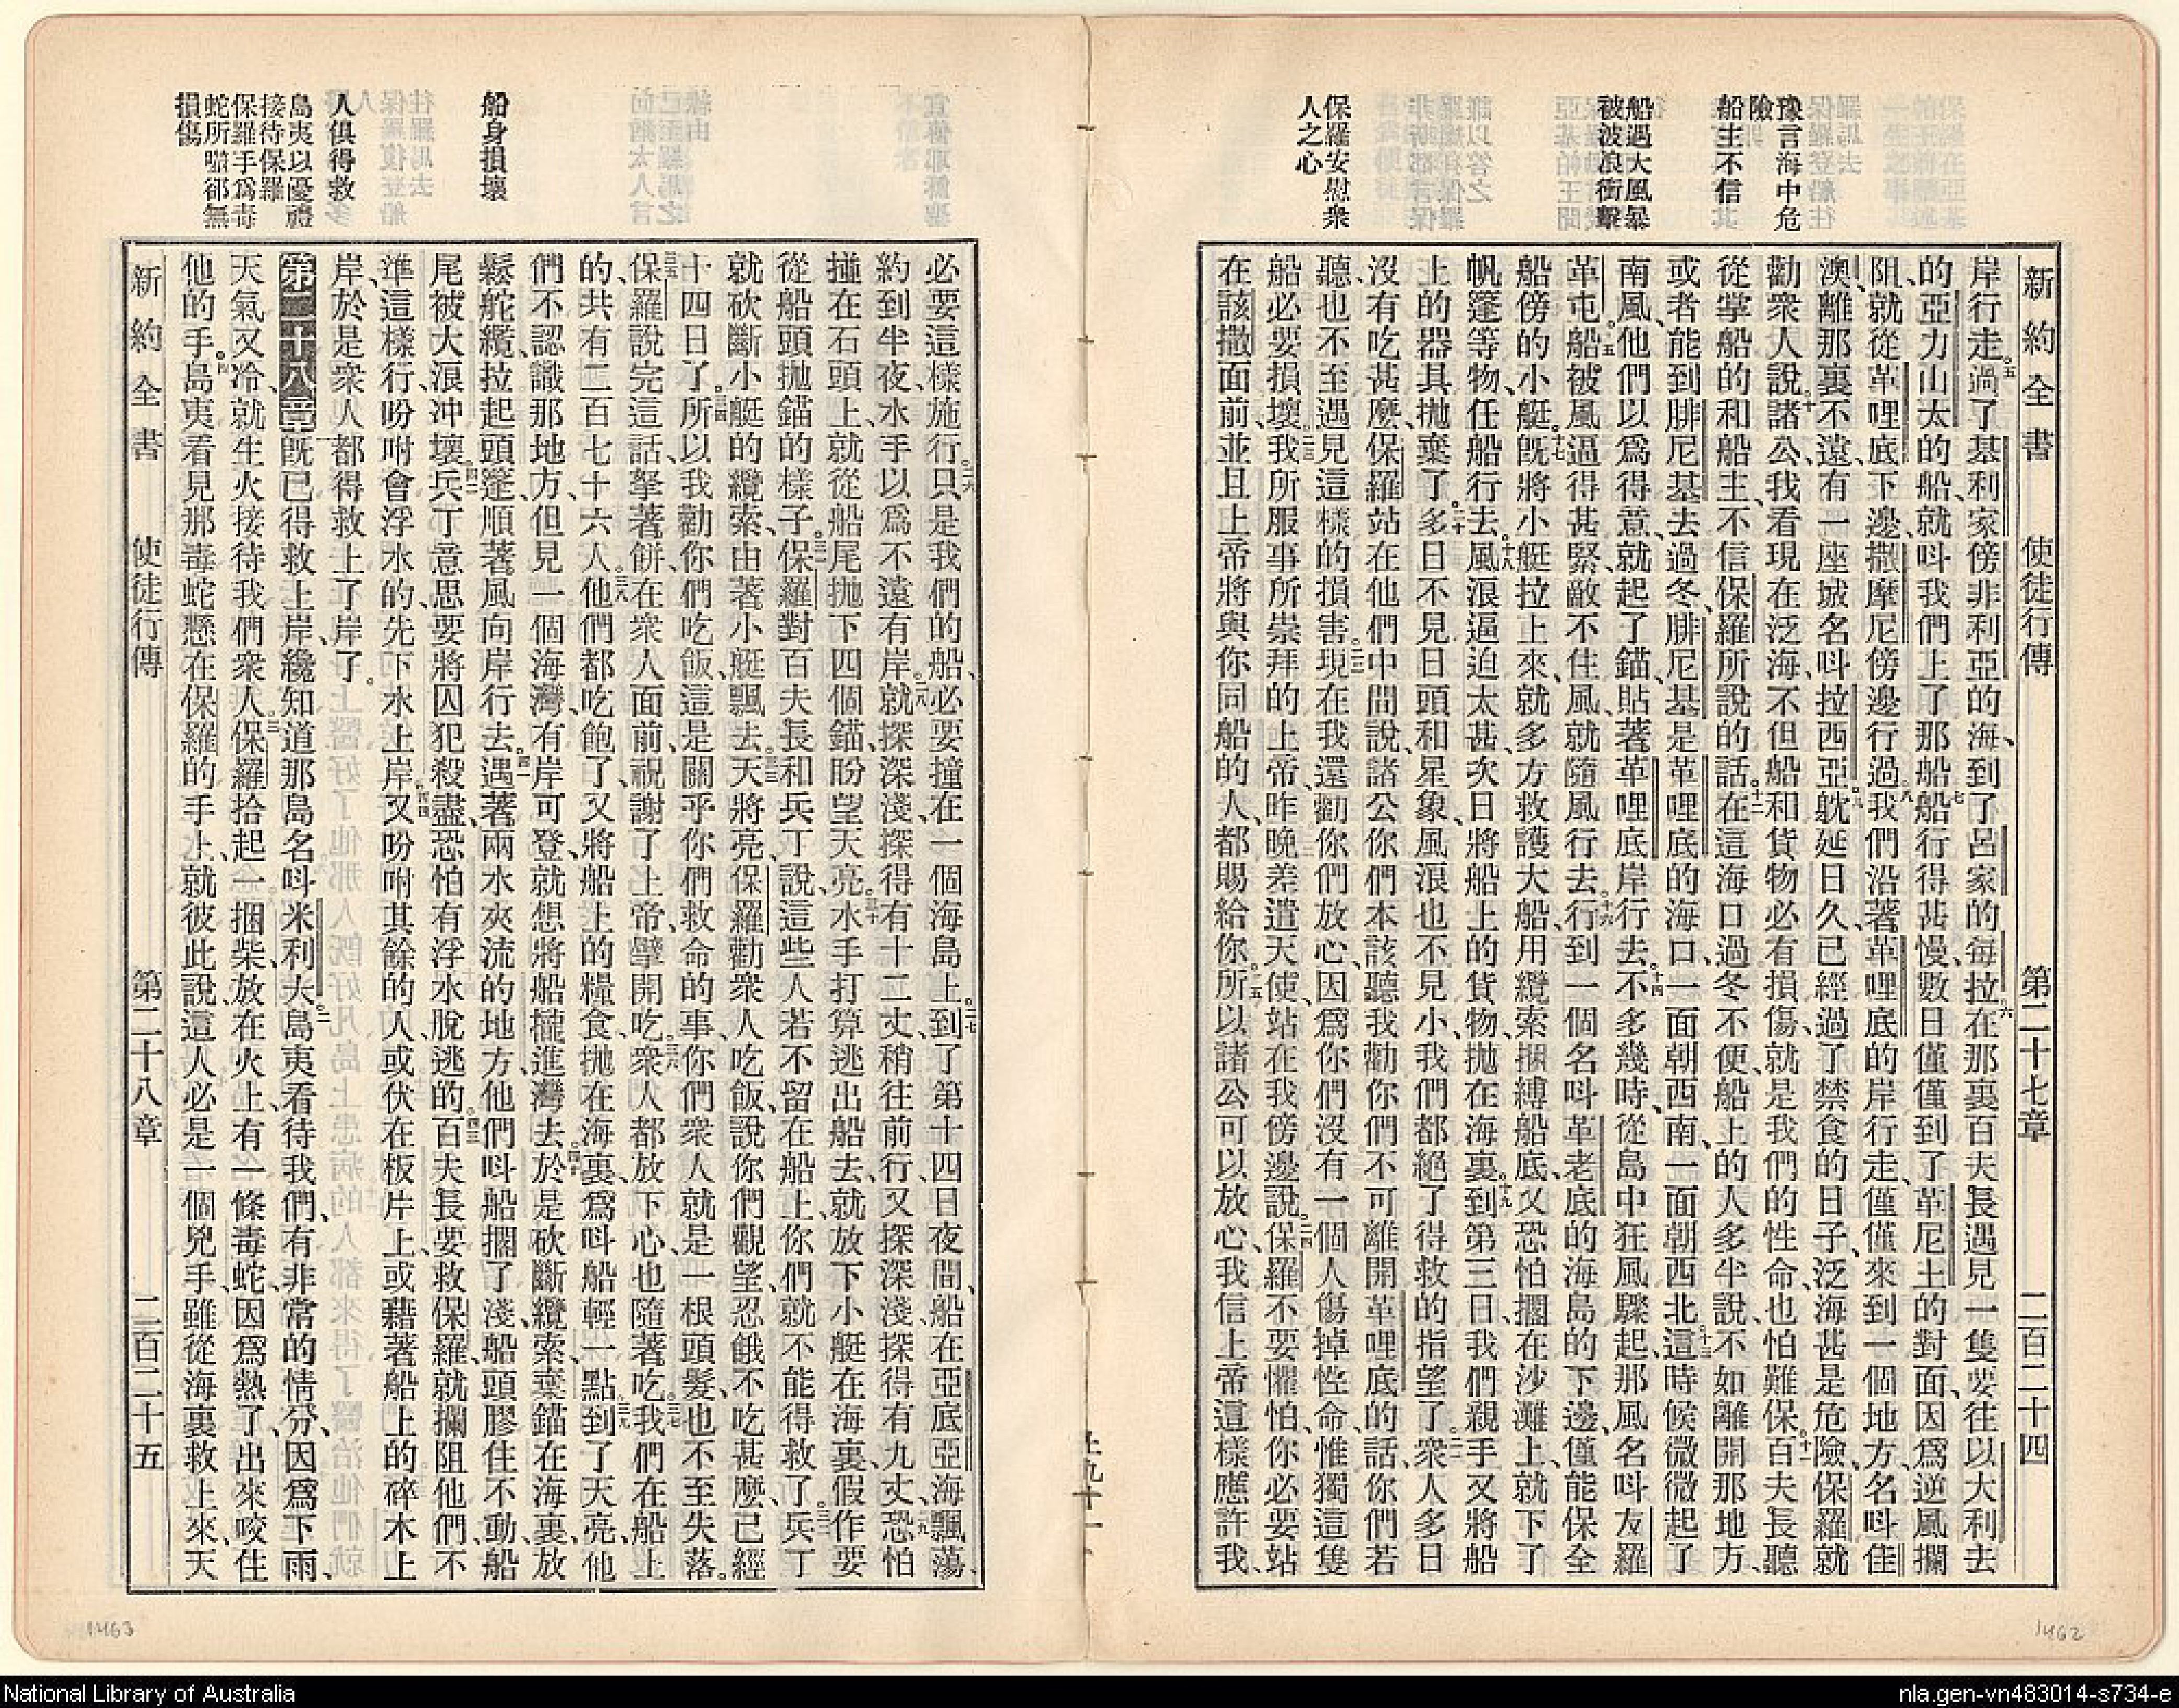 豫言海中危
險
船主不信
船遇大風暴
被波浪衝擊
保羅安慰衆
人之心
新約全書 使徒行傳 第二十七章 二百二十四
岸行走。五過了基利家傍非利亞的海、到了呂家的每拉。六在那裏百夫長遇見一隻要往以大利去
的亞力山太的船、就呌我們上了那船。七船行得甚慢、數日僅僅到了革尼土的對面、因爲逆風攔
阻、就從革哩底下邊、撒摩尼傍邊行過。八我們沿著革哩底的岸行走、僅僅來到一個地方、名呌佳
澳、離那裏不遠、有一座城名呌拉西亞。九躭延日久、已經過了禁食的日子、泛海甚是危險、保羅就
勸衆人說、十諸公我看現在泛海、不但船和貨物必有損傷、就是我們的性命也怕難保。十一百夫長聽
從掌船的和船主、不信保羅所說的話。十二在這海口過冬不便、船上的人多半說、不如離開那地方、
或者能到腓尼基去過冬、腓尼基是革哩底的海口、一面朝西南、一面朝西北。十三這時候微微起了
南風、他們以爲得意、就起了錨、貼著革哩底岸行去。十四不多幾時、從島中狂風驟起、那風名呌友羅
革屯。十五船被風逼得甚緊、敵不住風、就隨風行去。十六行到一個名呌革老底的海島的下邊、僅能保全
船傍的小艇。十七旣將小艇拉上來、就多方救護大船、用纜索捆縛船底、又恐怕擱在沙灘上、就下了
帆篷等物、任船行去。十八風浪逼迫太甚、次日將船上的貨物、拋在海裏。十九到第三日、我們親手又將船
上的器具拋棄了。二十多日不見日頭和星象、風浪也不見小、我們都絕了得救的指望了。二一衆人多日
沒有吃甚麼、保羅站在他們中間說、諸公你們本該聽我勸你們不可離開革哩底的話、你們若
聽、也不至遇見這樣的損害。二二現在我還勸你們放心、因爲你們沒有一個人傷掉性命、惟獨這隻
船必要損壞。二三我所服事所崇拜的上帝、昨晚差遣天使、站在我傍邊說、二四保羅不要懼怕、你必要站
在該撒面前、並且上帝將與你同船的人、都賜給你。二五所以諸公可以放心、我信上帝這樣應許我、
必要這樣施行。二六只是我們的船、必要撞在一個海島上。二七到了第十四日夜間、船在亞底亞海飄蕩、
約到半夜、水手以爲不遠有岸。二八就探深淺、探得有十二丈、稍往前行、又探深淺、探得有九丈。二九恐怕
撞在石頭上、就從船尾拋下四個錨、盼望天亮。三十水手打算逃出船去、就放下小艇在海裏、假作要
從船頭拋錨的樣子。三一保羅對百夫長和兵丁說、這些人若不留在船上、你們就不能得救了。三二兵丁
就砍斷小艇的纜索、由著小艇飄去。三三天將亮、保羅勸衆人吃飯、說你們觀望忍餓不吃甚麼、已經
十四日了。三四所以我勸你們吃飯、這是關乎你們救命的事、你們衆人就是一根頭髮、也不至失落。
三五保羅說完這話、拏著餅、在衆人面前、祝謝了上帝、擘開吃。三六衆人都放下心、也隨著吃。三七我們在船上
的、共有二百七十六人。三八他們都吃飽了、又將船上的糧食拋在海裏、爲呌船輕一點。三九到了天亮、他
們不認識那地方、但見一個海灣、有岸可登、就想將船攏進灣去。四十於是砍斷纜索、棄錨在海裏、放
鬆舵纜、拉起頭篷、順著風向岸行去。四一遇著兩水夾流的地方、他們呌船擱了淺、船頭膠住不動、船
尾被大浪冲壞。四二兵丁意思要將囚犯殺盡、恐怕有浮水脫逃的。四三百夫長要救保羅、就攔阻他們、不
準這樣行、吩咐會浮水的、先下水上岸。四四又吩咐其餘的人、或伏在板片上、或藉著船上的碎木上
岸、於是衆人都得救上了岸了。
第二十八章旣已得救上岸、纔知道那島名呌米利大。二島夷看待我們、有非常的情分、因爲下雨、
天氣又冷、就生火接待我們衆人。三保羅拾起一捆柴、放在火上、有一條毒蛇、因爲熱了、出來咬住
他的手。四島夷看見那毒蛇懸在保羅的手上、就彼此說、這人必是一個兇手、雖從海裏救上來、天
新約全書 使徒行傳 第二十八章 二百二十五
船身損壞
人俱得救
島夷以憂禮
接待保羅
保羅手爲毒
蛇所囓卻無
損傷
1463
1462
National Library of Australia
nla.gen-vn483014-s734-e